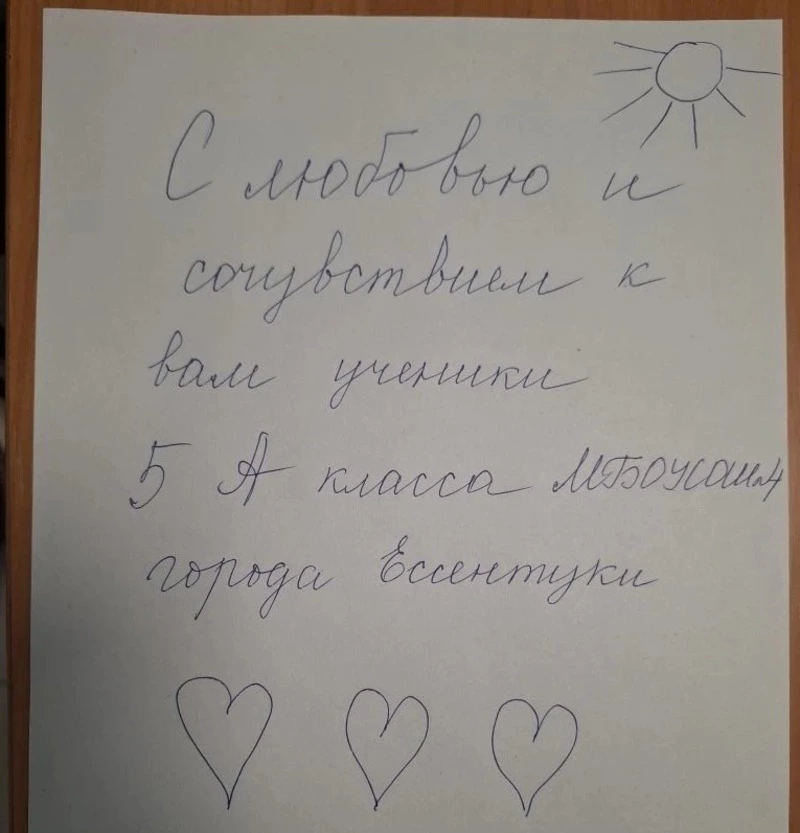 С любовью и
сочувствием к
вам ученики
5 А класса МБОУСОШ№4
города Ессентуки